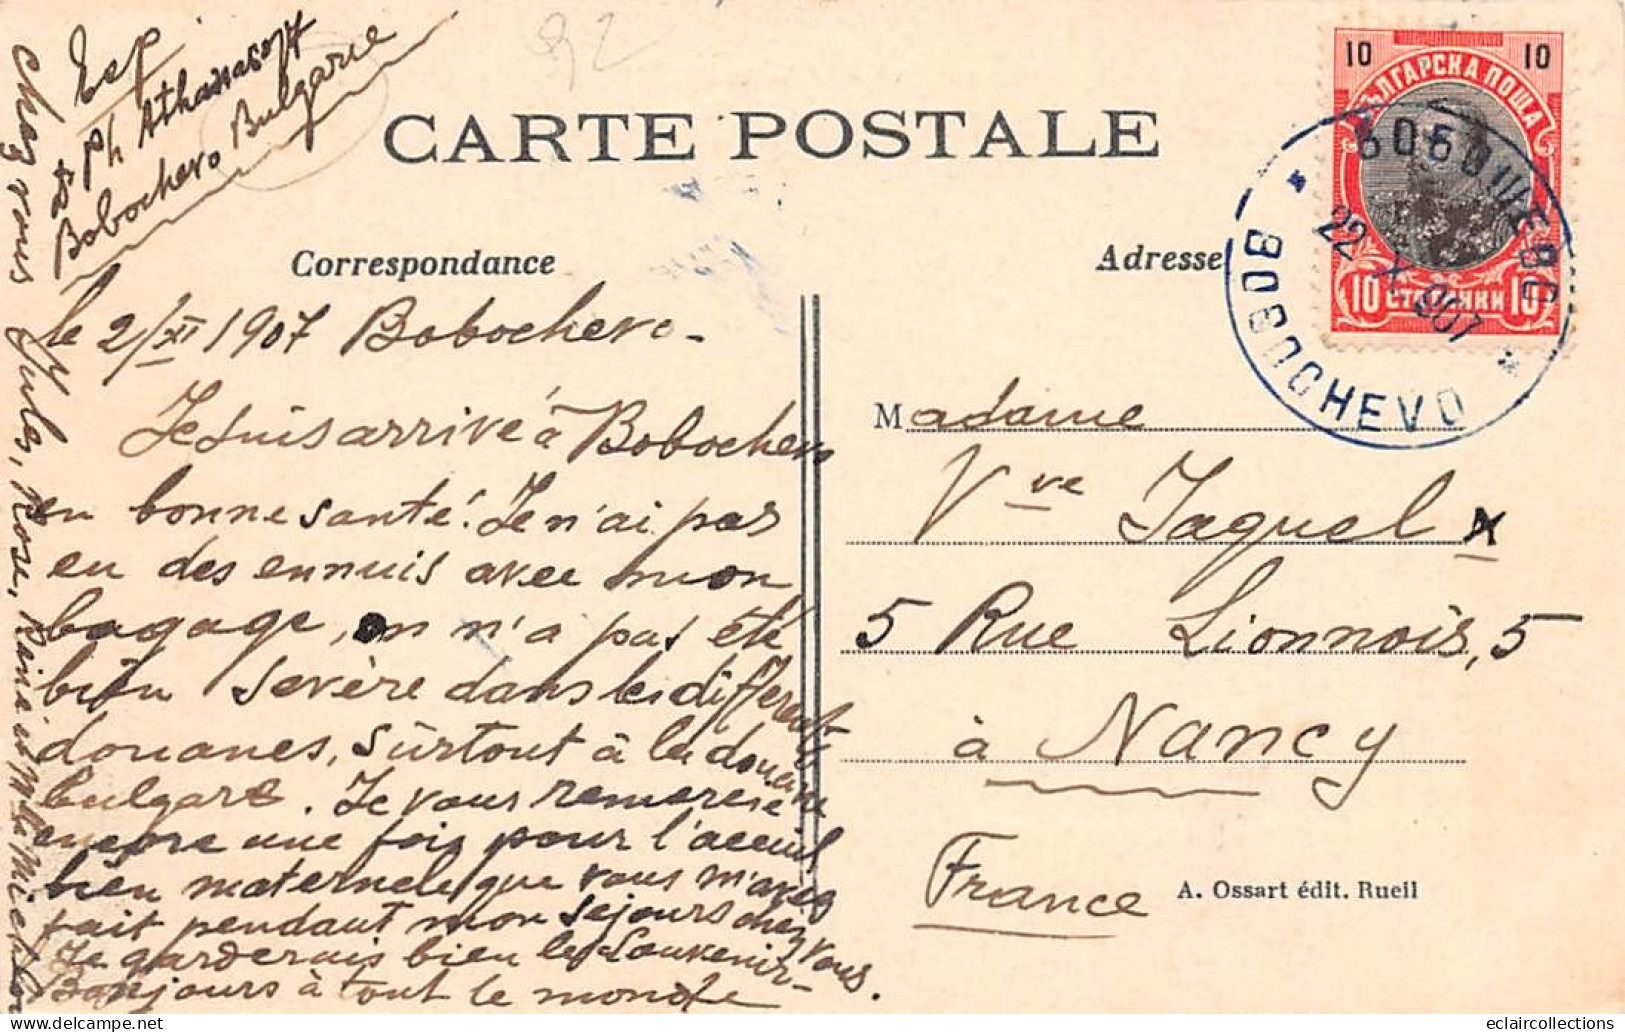 Exp
Dr Ph Athanasoff
Bobochevo Bulgarie
92
CARTE POSTALE
Correspondance
Adresse
10 10
БЪЛГАРСКА ПОЩА
10 СТОТИНКИ 10
БОБОШЕВО
22 X 907
BOBOCHEVO
le 2/XI 1907 Bobochevo-
Je suis arrivé à Bobochevo
en bonne santé. Je n'ai pas
eu des ennuis avec mon
bagage, on n'a pas été
bien sevère dans les different
douanes, surtout à la douane
bulgare. Je vous remercie
encore une fois pour l'aceuil
bien maternele que vous m'avez
fait pendant mon sejours chez vous.
Je garderais bien le souvenir-
Bonjours à tout le monde
chez vous Jules, Rose,
Madame
Vve Jaquel
5 Rue Lionnois, 5
à Nancy
France
A. Ossart édit. Rueil
eclaircollections